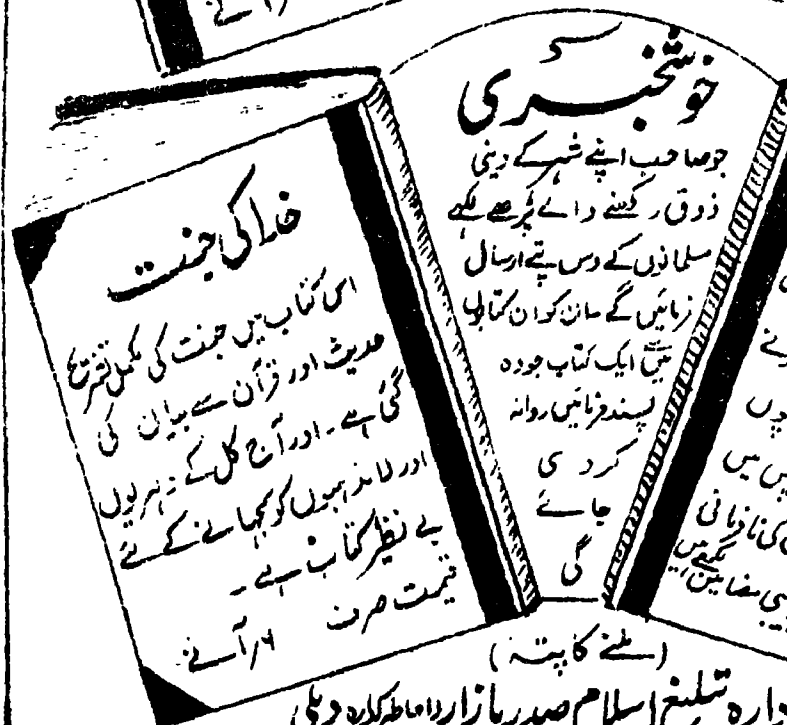 خوشخبری
جو صاحب اپنے شہر کے دینی
ذوق رکھنے والے پڑھے لکھے
مسلمانوں کے دس پتے ارسال
فرمائیں گے ان کو ان کتابوں
میں سے ایک کتاب جو وہ
پسند فرمائیں روانہ
کر دی
جائے
گی
خدا کی جنت
اس کتاب میں جنت کی مکمل تشریح
حدیث اور قرآن سے بیان کی
گئی ہے۔ اور آج کل کے دہریوں
اور لامذہبوں کو سمجھانے کے لئے
بے نظیر کتاب ہے۔
قیمت صرف ۶/ آنے
(ملنے کا پتہ)
ادارہ تبلیغ اسلام صدر بازار دہلی